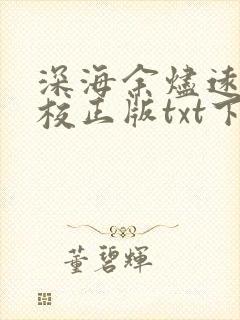 深海余烬速
校正版txt下
董碧辉